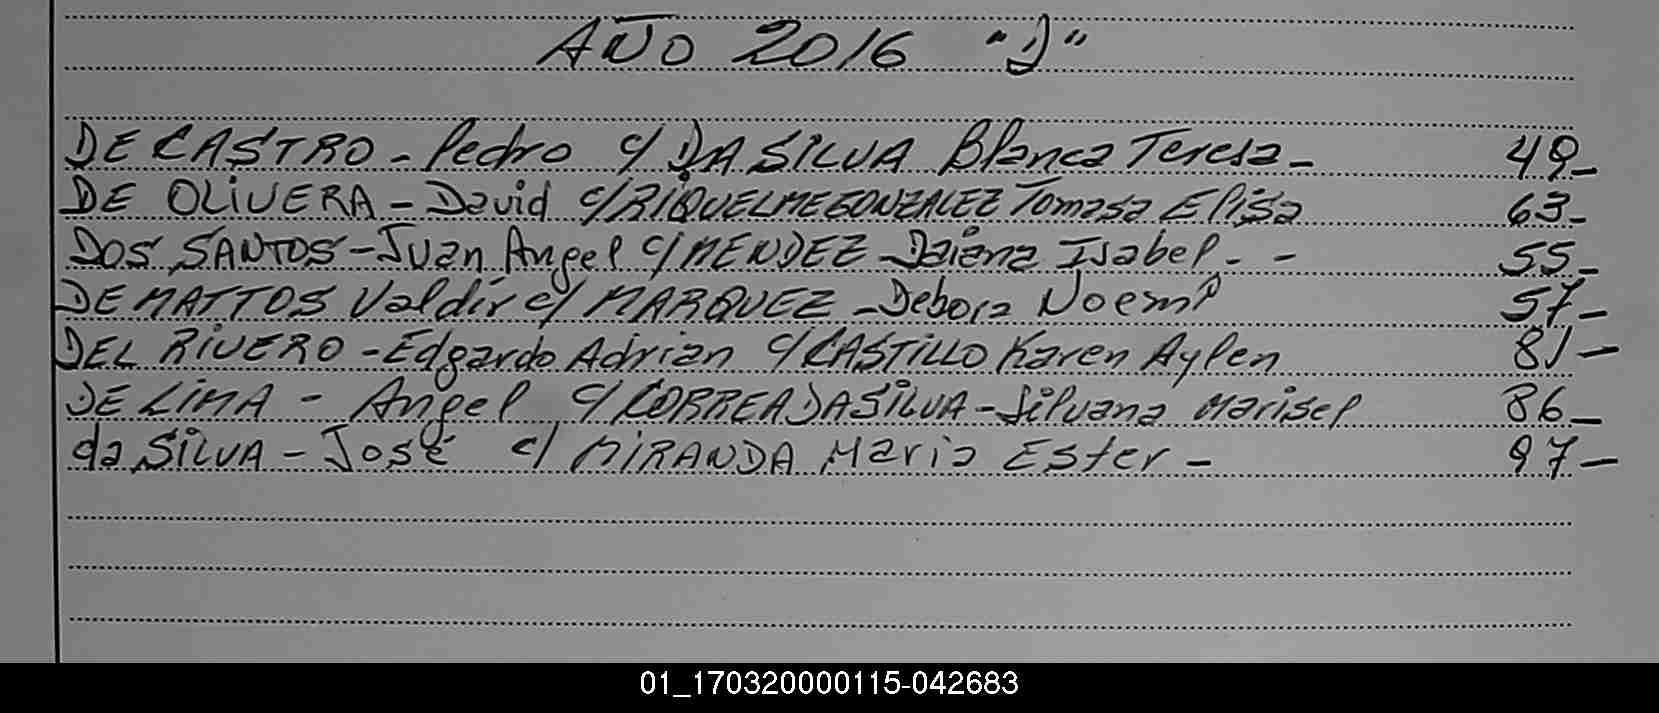 AÑO 2016 "D"
DE CASTRO - Pedro c/ DA SILVA Blanca Teresa - 49 -
DE OLIVERA - David c/ RIQUELME GONZALEZ Tomasa Elisa 63 -
DOS SANTOS - Juan Angel c/ MENDEZ - Daiana Isabel - - 55 -
DE MATTOS Valdir c/ MARQUEZ - Debora Noemí 57 -
DEL RIVERO - Edgardo Adrian c/ CASTILLO Karen Aylen 81 -
DE LIMA - Angel c/ CORREA DA SILVA - Silvana Marisel 86 -
da SILVA - José c/ MIRANDA Maria Ester - 97 -
01_170320000115-042683